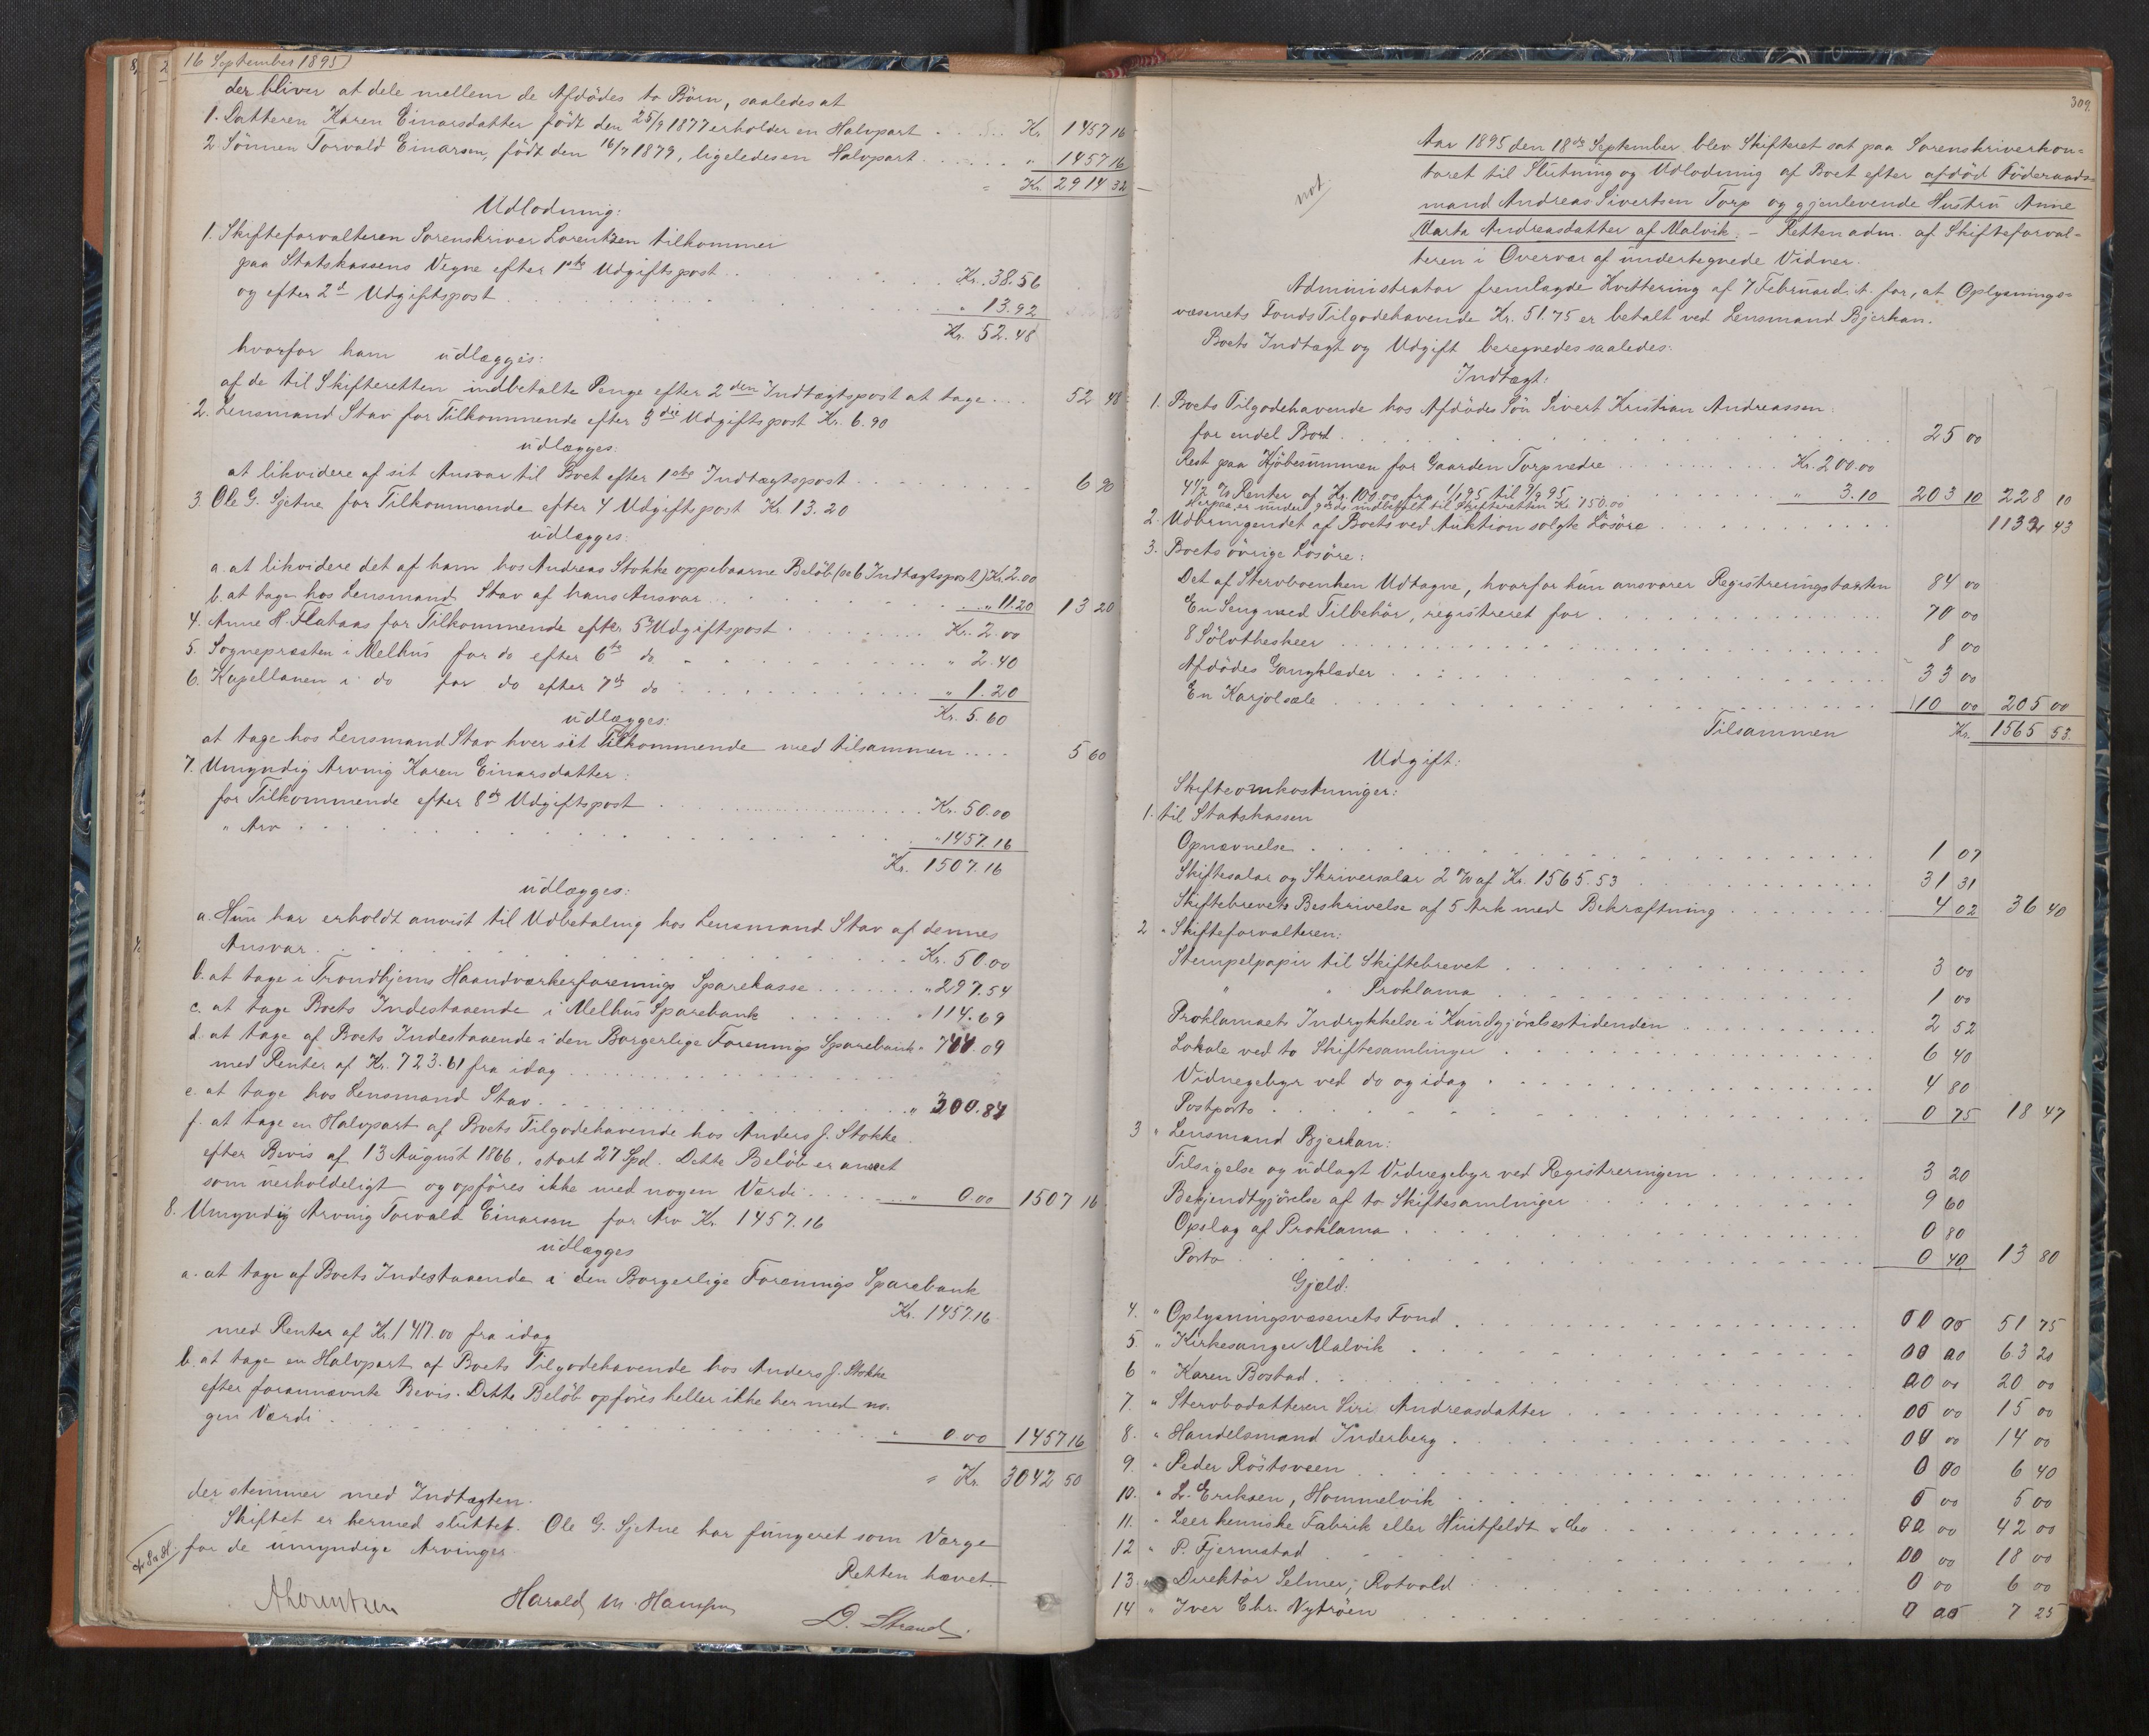 16 September 1895)
der bliver at dele mellem de Afdödes to Börn, saaledes at
1. Datteren Karen Einarsdatter födt den 25/9 1877 erholder en Halvpart . . . . Kr. 1457 16
2. Sönnen Torvald Einarsen, födt den 16/7 1879, ligeledes en Halvpart . . . . " 1457 16
= Kr. 2914 32
Udlodning:
1. Skifteforvalteren Sorenskriver Lorentzen tilkommer
paa Statskassens Vegne efter 1ste Udgiftspost . . . Kr. 38.56
og efter 2d Udgiftspost . . . " 13.92
Kr. 52.48
hvorfor ham udlægges:
af de til Skifteretten indbetalte Penge efter 2den Indtægtspost at tage . . . 52 48
2. Lensmand Stav for Tilkommende efter 3die Udgiftspost Kr. 6.90
udlægges:
at likvidere af sit Ansvar til Boet efter 1ste Indtægtspost . . . 6 90
3. Ole G. Sjetne for Tilkommende efter 4 Udgiftspost Kr. 13.20
udlægges:
a. at likvidere det af ham hos Andreas Stokke oppebaarne Belöb (se 6 Indtægtspost) Kr. 2.00
b. at tage hos Lensmand Stav af hans Ansvar . . . " 11.20 13 20
4. Anne H. Flataas for Tilkommende efter 5te Udgiftspost . . . Kr. 2.00
5. Sognepræsten i Melhus for do efter 6te do . . . " 2.40
6. Kapellanen i do for do efter 7de do . . . " 1.20
udlægges: Kr. 5.60
at tage hos Lensmand Stav hver sit Tilkommende med tilsammen . . . . 5 60
7. Umyndig Arving Karen Einarsdatter:
for Tilkommende efter 8de Udgiftspost . . . Kr. 50.00
" Arv . . . " 1457.16
Kr. 1507.16
udlægges:
a. Hun har erholdt anvist til Udbetaling hos Lensmand Stav af dennes
Ansvar . . . Kr. 50.00
b. at tage i Trondhjems Haandværkerforenings Sparekasse . . . " 297.54
c. at tage Boets Indestaaende i Melhus Sparebank . . . " 114.69
d. at tage af Boets Indestaaende i den Borgerlige Forenings Sparebank " 744.09
med Renter af Kr. 723.61 fra idag . . .
e. at tage hos Lensmand Stav . . . " 300.84
f. at tage en Halvpart af Boets Tilgodehavende hos Anders J. Stokke
efter Bevis af 13 August 1866, stort 27 Spd. Dette Belöb er anseet
som uerholdeligt og opföres ikke med nogen Værdi . . . " 0.00 1507 16
8. Umyndig Arving Torvald Einarsen for Arv Kr. 1457.16
udlægges
a. at tage af Boets Indestaaende i den Borgerlige Forenings Sparebank
Kr. 1457.16
med Renter af Kr. 1417.00 fra idag
b. at tage en Halvpart af Boets Tilgodehavende hos Anders J. Stokke
efter forannævnte Bevis. Dette Belöb opföres heller ikke her med no-
gen Værdi . . . " 0.00 1457 16
= Kr. 3042 50
der stemmer med Indtægten.
Skiftet er hermed sluttet. Ole G. Sjetne har fungeret som Værge
for de umyndige Arvinger.
Retten hævet.
ALorentzen Harald M. Hanssen D. Strand.
309.
not.
Aar 1895 den 18de September blev Skifteret sat paa Sorenskriverkon-
toret til Slutning og Udlodning af Boet efter afdöd Föderaads-
mand Andreas Sivertsen Torp og gjenlevende Hustru Anne
Marta Andreasdatter af Malvik. - Retten adm. af Skifteforval-
teren i Overvær af undertegnede Vidner.
Administrator fremlagde Kvittering af 7 Februar d. A. for, at Oplysnings-
væsenets Fonds Tilgodehavende Kr. 51.75 er betalt ved Lensmand Bjerkan.
Boets Indtægt og Udgift beregnedes saaledes:
Indtægt:
1. Boets Tilgodehavende hos Afdödes Sön Sivert Kristian Andreassen:
for endel Bord . . . 25 00
Rest paa Kjöbesummen for Gaarden Torp nedre . . . Kr. 200.00
4 1/2 % Renter af Kr. 100.00 fra 1/1 95 til 9/9 95 . . . " 3.10 203 10 228 10
Herpaa er under 9 ds indbetalt til Skifteretten Kr. 150.00
2. Udbringendet af Boets ved Auktion solgte Lösöre . . . 1132 43
3. Boets övrige Lösöre:
Det af Stervboenken Udtagne, hvorfor hun ansvarer Registreringstaxten 84 00
En Seng med Tilbehör, registreret for . . . 70 00
8 Sölvtheskeer . . . 8 00
Afdödes Gangklæder . . . 33 00
En Karjolsæle . . . 10 00 205 00
Tilsammen Kr. 1565 53.
Udgift:
Skifteomkostninger:
1. til Statskassen
Opnævnelse . . . 1 07
Skiftesalar og Skriversalær 2 % af Kr. 1565.53 . . . 31 31
Skiftebrevets Beskrivelse af 5 Ark med Bekræftning . . . 4 02 36 40
2 " Skifteforvalteren:
Stempelpapir til Skiftebrevet . . . 3 00
" " Proklama . . . 1 00
Proklamaets Indrykkelse i Kundgjörelsestidenden . . . 2 52
Lokale ved to Skiftesamlinger . . . 6 40
Vidnegebyr ved do og idag . . . 4 80
Postporto . . . 0 75 18 47
3 " Lensmand Bjerkan:
Tilsigelse og udlagt Vidnegebyr ved Registreringen . . . 3 20
Bekjendtgjörelse af to Skiftesamlinger . . . 9 60
Opslag af Proklama . . . 0 80
Porto . . . 0 40 13 80
Gjeld:
4. " Oplysningsvæsenets Fond . . . 51 75
5. " Kirkesanger Malvik . . . 63 20
6 " Karen Bostad . . . 20 00
7. " Stervbodatteren Siri Andreasdatter . . . 15 00
8. " Handelsmand Inderberg . . . 14 00
9. " Peder Röstsveen . . . 6 40
10. " L. Eriksen, Hommelvik . . . 5 00
11. " Leer kemiske Fabrik eller Huitfeldt & Co . . . 42 00
12 " P. Fjermstad . . . 18 00
13 " Direktör Selmer, Rotvold . . . 6 00
14 " Iver Chr. Nytröen . . . 7 25